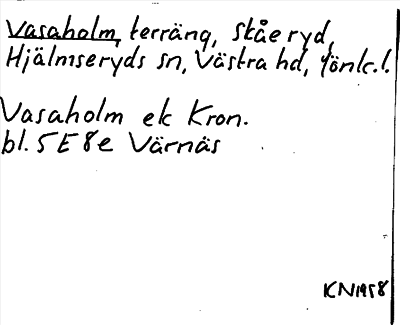 Vasaholm, terräng, Skåeryd,
Hjälmseryds sn, Västra hd, Jönk.l.
Vasaholm ek Kron.
bl. 5E8e Värnäs
KN1958